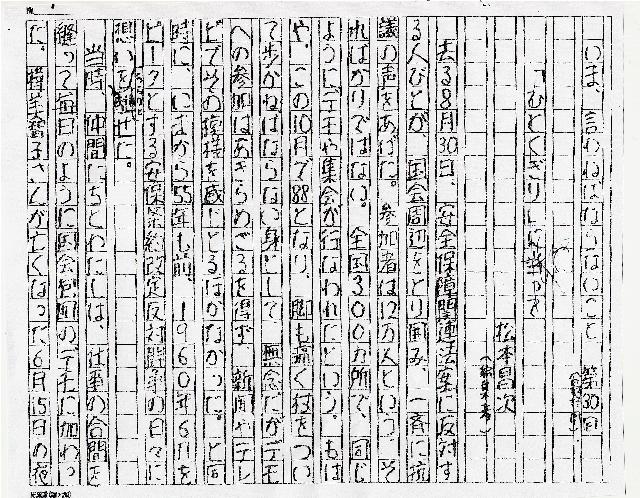 いま、言わねばならないこと 第30回
(最終回)
「ひとくぎり」に当って
松本昌次
(編集者)
去る8月30日、安全保障関連法案に反対す
る人びとが、国会周辺をとり囲み、一斉に抗
議の声をあげた。参加者は12万人という。そ
ればかりではない。全国300カ所で、同じ
ようにデモや集会が行なわれたという。もは
や、この10月で88となり、脚も痛く杖をつい
て歩かねばならない身として、無念だがデモ
への参加はあきらめざるを得ず、新聞やテレ
ビでその模様を感じとるほかなかった。と同
時に、いまから55年も前、1960年6月を
ピークとする安保条約改定反対闘争の日々に
想いを馳せた。
当時、仲間たちとわたしは、仕事の合間を
縫って毎日のように国会包囲のデモに加わっ
た。樺美智子さんが亡くなった6月15日の夜